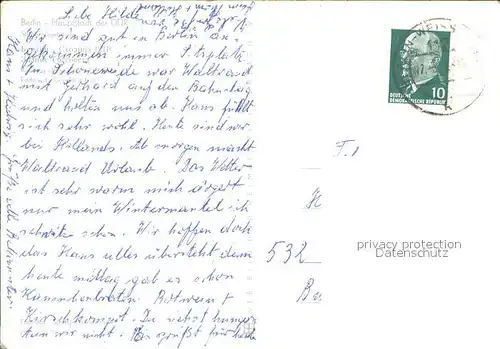 Liebe Hilde
Berlin - Hauptstadt der DDR
Wir sind gut in Berlin an-
gekommen immer Sitzplatz
In Schöneweide war Waltraud
mit Gerhard auf den Bahnhof
und holten uns ab. Hans fühlt
sich sehr wohl. Heute sind wir
bei Hollands. Ab morgen macht
Waltraud Urlaub. Das Wetter
ist sehr warm mich ärgert
nur mein Wintermantel ich
schwitze schon. Wir hoffen doch
das Hans alles übersteht denn
heute mittag gab es schon
Rotwein +
Kirschkompot. Du siehst hunger
tun wir nicht. Es grüßt für heute
Grüße alle Bekannten
DEUTSCHE
DEMOKRATISCHE REPUBLIK
10
532
privacy protection
Datenschutz